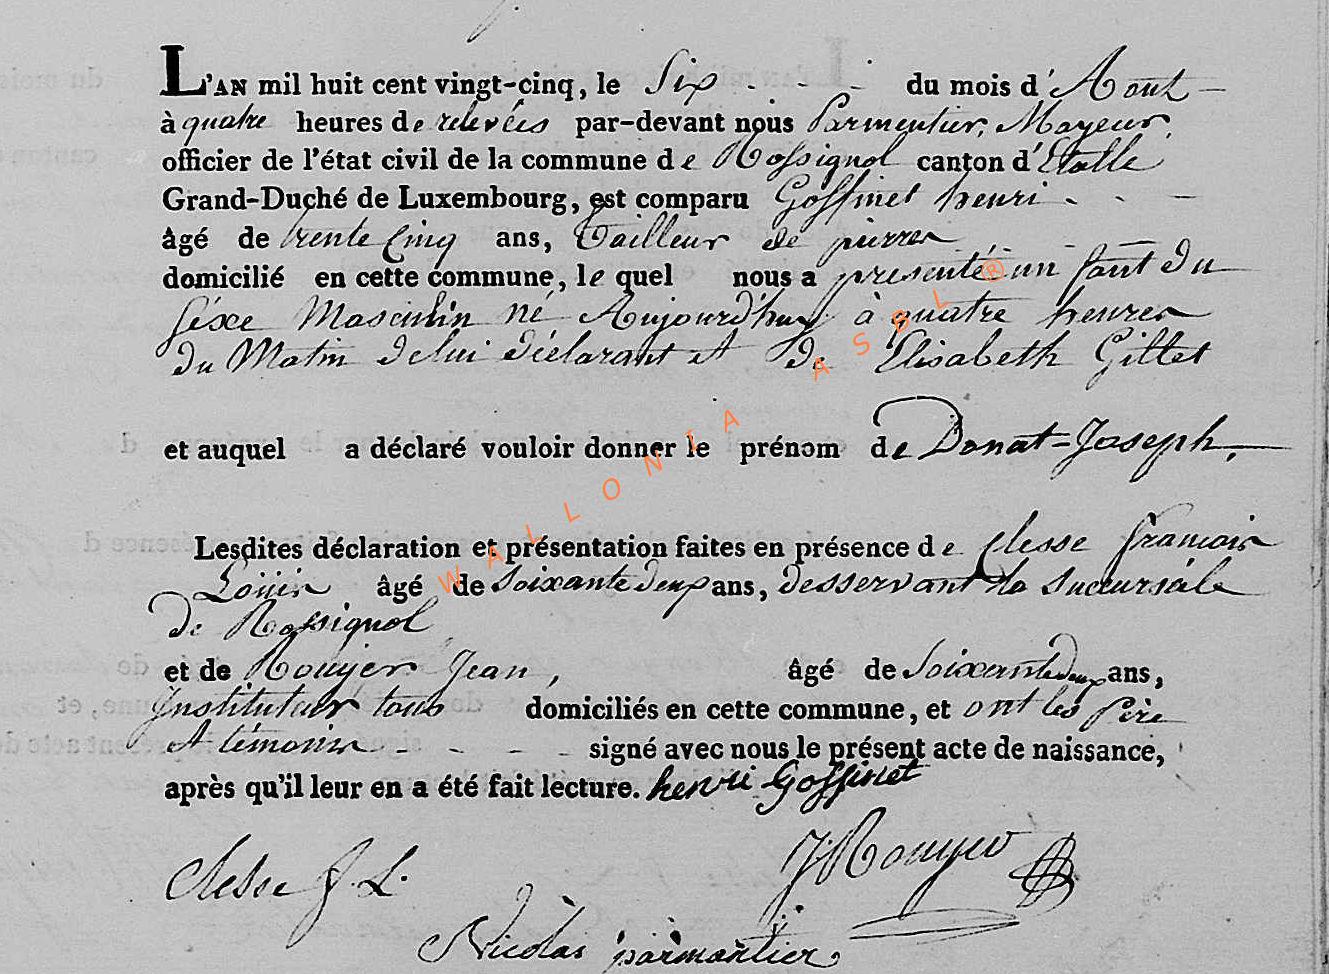 L'AN mil huit cent vingt-cinq, le Six - - - du mois d'Aout -
à quatre heures de relevées par-devant nous Parmentier, Mayeur,
officier de l'état civil de la commune de Rossignol canton d'Etalle
Grand-Duché de Luxembourg, est comparu Goffinet henri - - -
âgé de trente Cinq ans, Tailleur de pierres - - -
domicilié en cette commune, le quel nous a presenté un fant du
séxe Masculin né Aujourd'huy à quatre heures
du Matin de lui déclarant et de Elisabeth Gillet
et auquel a déclaré vouloir donner le prénom de Donat=Joseph,
Lesdites déclaration et présentation faites en présence de Clesse francois
Loüis âgé de soixante deux ans, desservant la succursale
de Rossignol
et de Rouyer Jean, âgé de Soixante deux ans,
Instituteur tous domiciliés en cette commune, et ont les Père
et témoins - - - - signé avec nous le présent acte de naissance,
après qu'il leur en a été fait lecture. henri Goffinet
Clesse f. L.
J Rouyer
Nicolas parmantier
WALLONIA ASBL ®